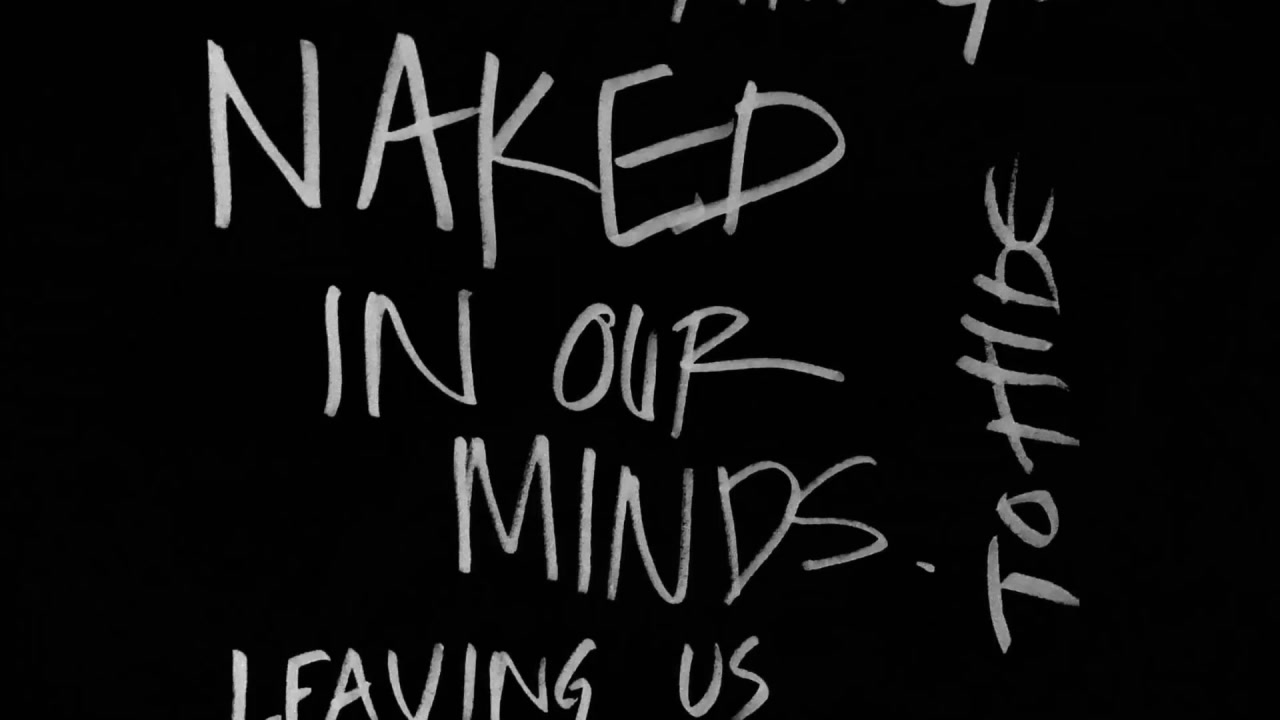 NAKED
IN OUR
MINDS.
LEAVING US
TO HIDE